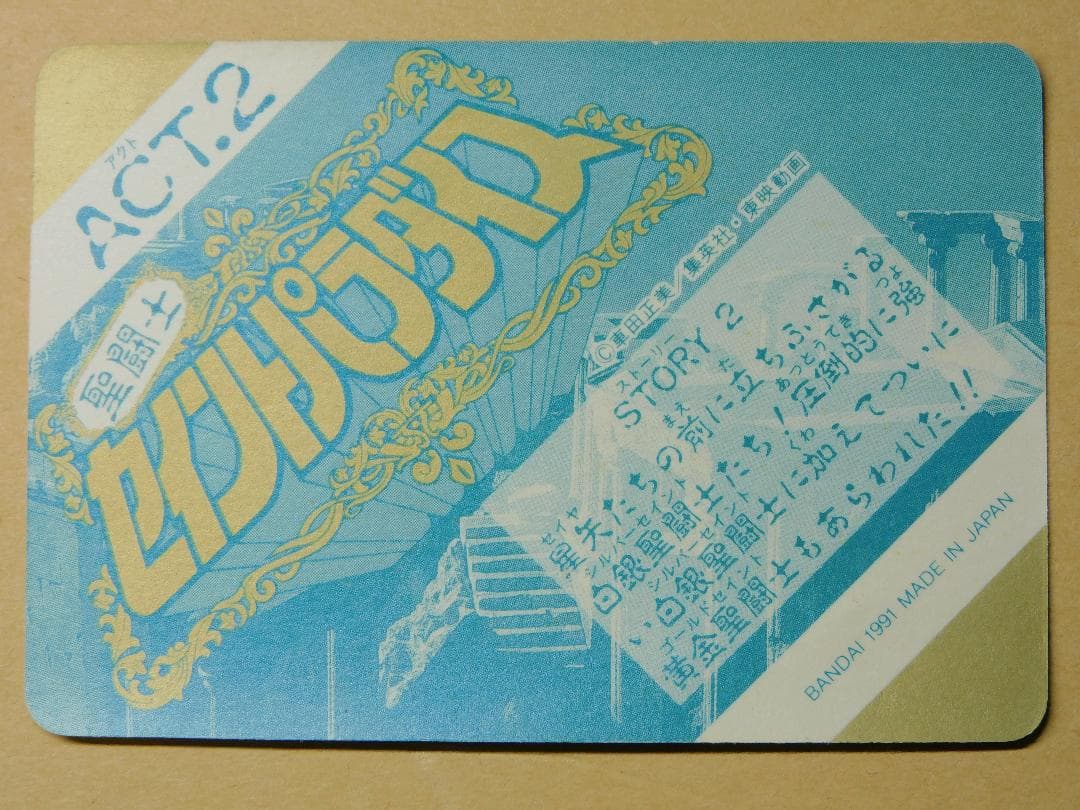 アクト
ACT.2
聖闘士
セイントパラダイス
©車田正美/集英社・東映動画
ストーリー
STORY 2
星矢たちの前に立ちふさがる
白銀聖闘士たち!圧倒的に強
い白銀聖闘士に加えてついに
黄金聖闘士もあらわれした!!
BANDAI 1991 MADE IN JAPAN